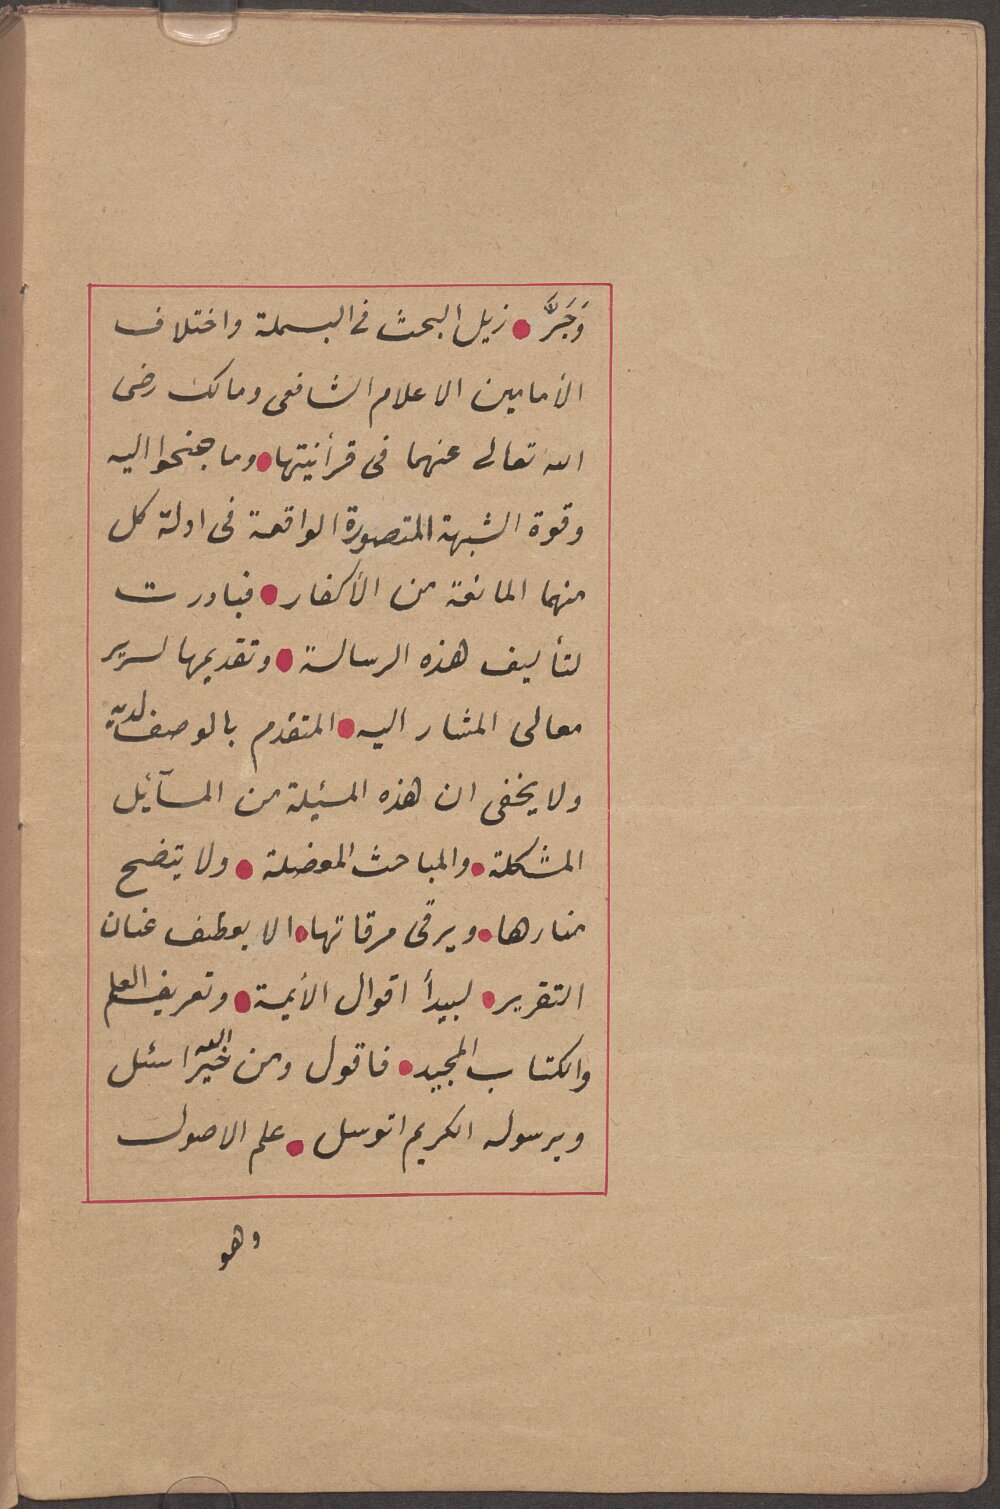 وَجَرَّ • زيل البحث فى البسملة واختلاف
الأمامين الاعلام الشافعى ومالك رضى
الله تعالى عنهما فى قرأنيتها • وما جنحوا اليه
وقوة الشبهة المتصورة الواقعة فى ادلة كل
منهما المانعة من الأكفار • فبادرت
لتأليف هذه الرسالة • وتقديمها لسرير
معالى المشار اليه • المتقدم بالوصف لديه
ولا يخفى ان هذه المسئيلة من المسآئيل
المشكلة • والمباحث المعضلة • ولا يتضح
منارها • ويرقى مرقاتها • الا بعطف عنان
التقرير • لبيدأ اقوال الأيمة • وتعريف العلم
والكتاب المجيد • فاقول ومن خير الله اسئل
وبرسوله الكريم اتوسل • علم الاصول
وهو